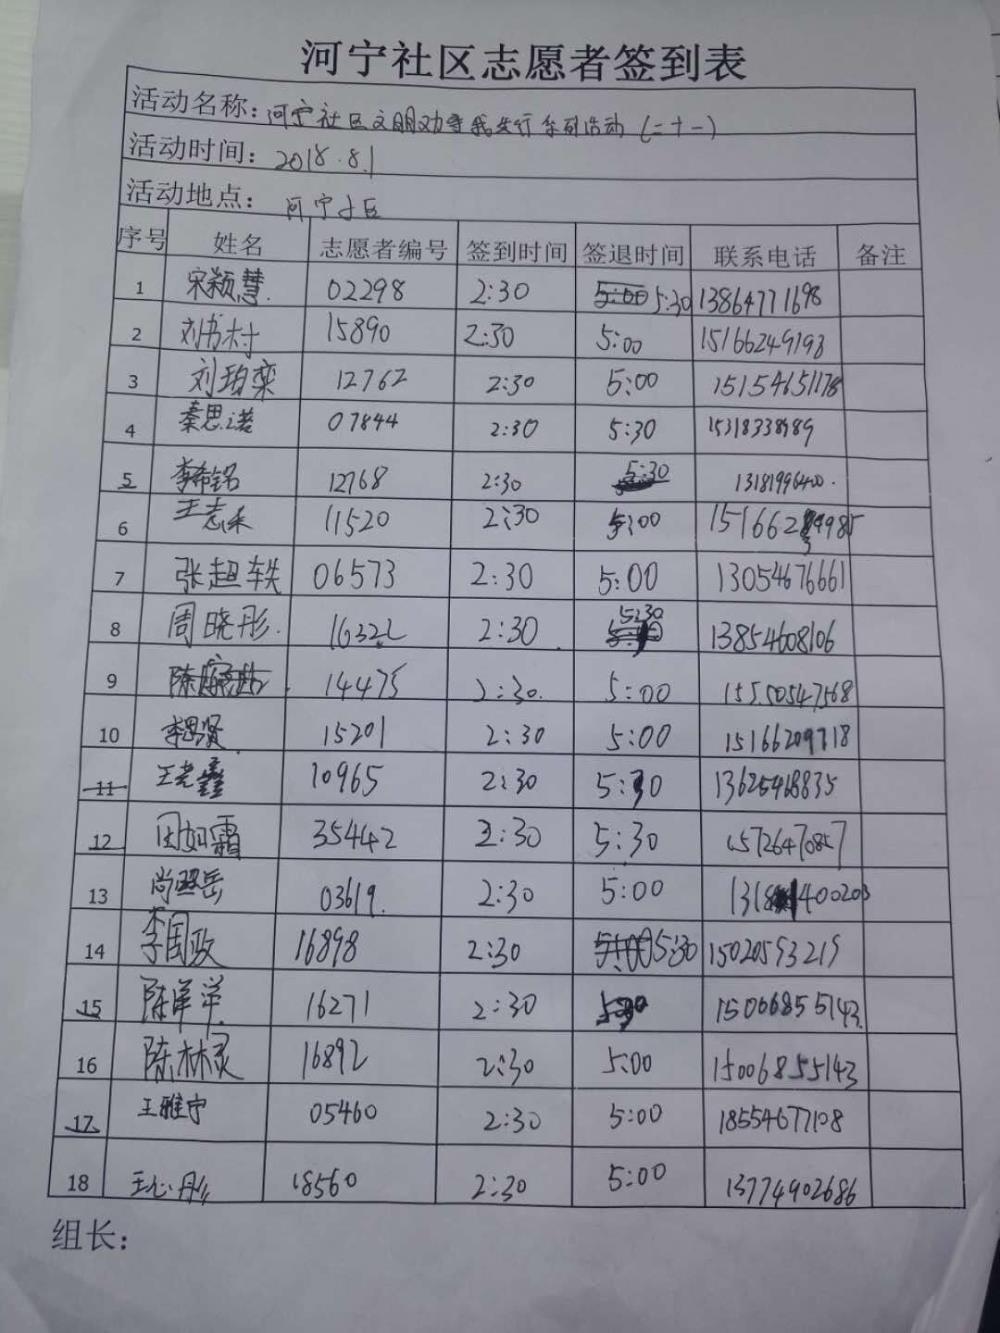 河宁社区志愿者签到表
活动名称：河宁社区文明劝导我先行系列活动（二十一）
活动时间：2018.8.1
活动地点：河宁小区
序号 姓名 志愿者编号 签到时间 签退时间 联系电话 备注
1 宋颖慧 02298 2:30 5:30 13864771698
2 刘书村 15890 2:30 5:00 15166249193
3 刘珀栾 12762 2:30 5:00 15154651178
4 秦思诺 07844 2:30 5:30 15318338989
5 李希铭 12768 2:30 5:30 13181996400
6 王志 11520 2:30 5:00
7 张超轶 06573 2:30 5:00 13054676661
8 周晓彤 2:30 5:30 13854608106
9 陈 14475 2:30 5:00 15550547568
10 李思贤 15201 2:30 5:00 15166209718
11 王艺鑫 10965 2:30 5:30 13625468835
12 田如霜 35442 2:30 5:30 15726470857
13 尚熙岳 03619 2:30 5:00
14 李国政 16898 2:30 5:30 15020593219
15 陈洋洋 16271 2:30 15006855143
16 陈林灵 16892 2:30 5:00 15006855143
17 王雅宁 05460 2:30 5:00 18554677108
18 王心彤 18560 2:30 5:00 13774902686
组长：